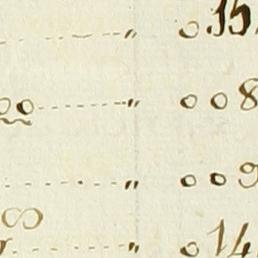 " 0 15
00 " 0 0 8
" 0 0 9
" 0 14